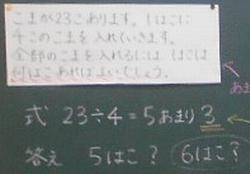 こまが23こあります。1はこに
4このこまを入れていきます。
全部のこまを入れるには はこは
何はこあればよいでしょう。
式 23÷4=5あまり3
答え 5はこ? 6はこ?